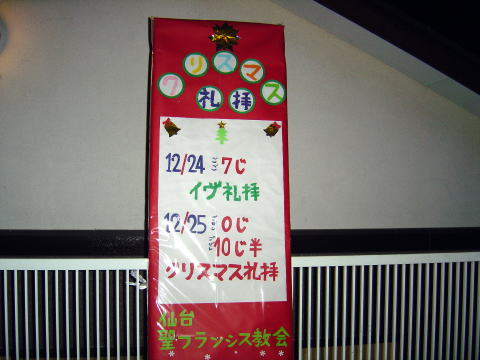 クリスマス
礼拝
12/24 ごご 7じ
イヴ礼拝
12/25 0じ
10じ半
クリスマス礼拝
仙台
聖フランシス教会